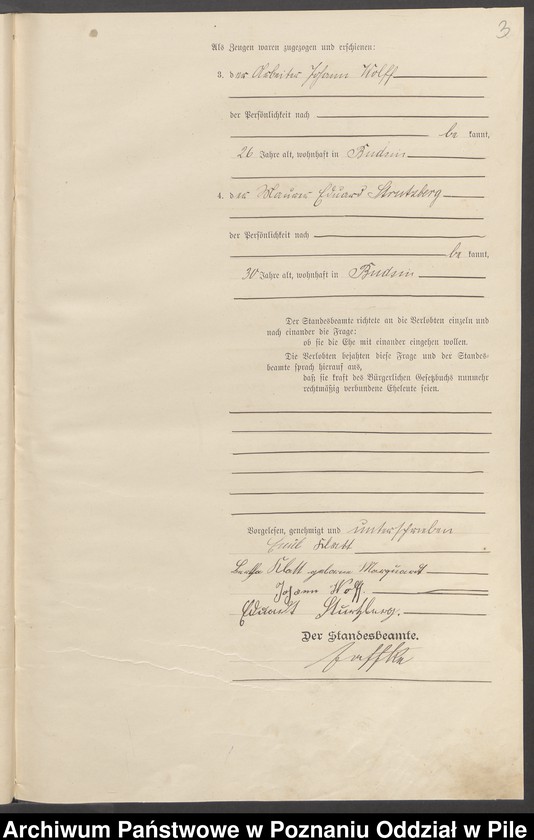 3
Als Zeugen waren zugezogen und erschienen:
3. der Arbeiter Johann Wolff
der Persönlichkeit nach
be kannt,
26 Jahre alt, wohnhaft in Budsin
4. der Maurer Eduard Strutzberg
der Persönlichkeit nach
be kannt,
30 Jahre alt, wohnhaft in Budsin
Der Standesbeamte richtete an die Verlobten einzeln und
nach einander die Frage:
ob sie die Ehe mit einander eingehen wollen.
Die Verlobten bejahten diese Frage und der Standes-
beamte sprach hierauf aus,
daß sie kraft des Bürgerlichen Gesetzbuchs nunmehr
rechtmäßig verbundene Eheleute seien.
Vorgelesen, genehmigt und unterschrieben
Emil Klatt
Bertha Klatt geborne Marquardt
Johann Wolff.
Eduard
Der Standesbeamte.
Archiwum Państwowe w Poznaniu Oddział w Pile